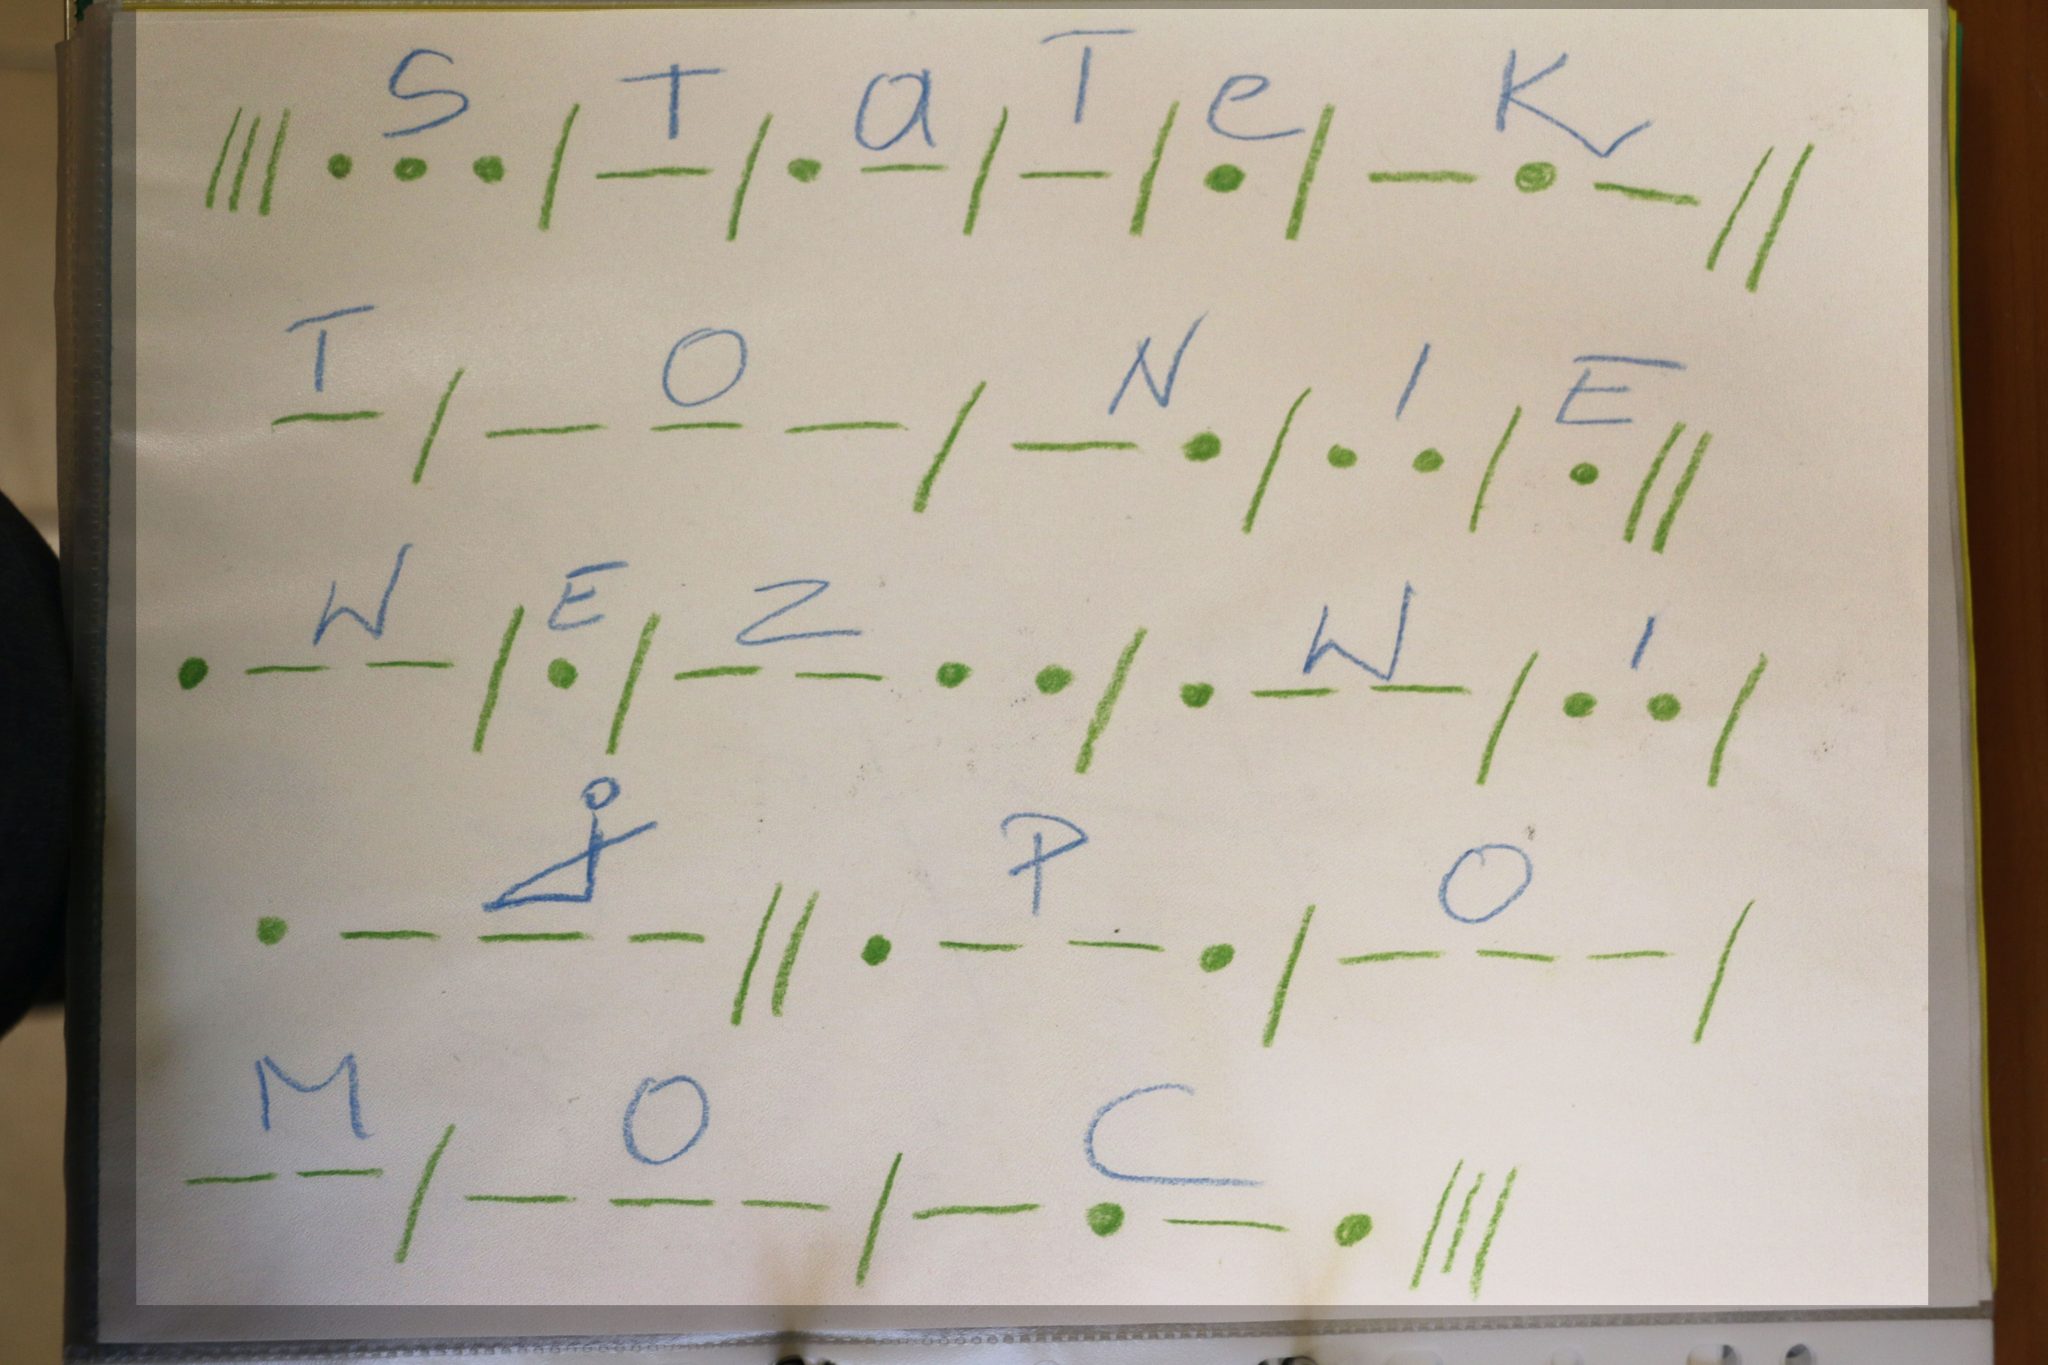 S T a T e K
/// • • • / — / • — / — / • / — • — //
T O N I E
— / — — — / — • / • • / • //
W E Z W I
• — — / • / — — • • / • — — / • • /
J P O
• — — — // • — — • / — — — /
M O C
— — / — — — / — • — • ///